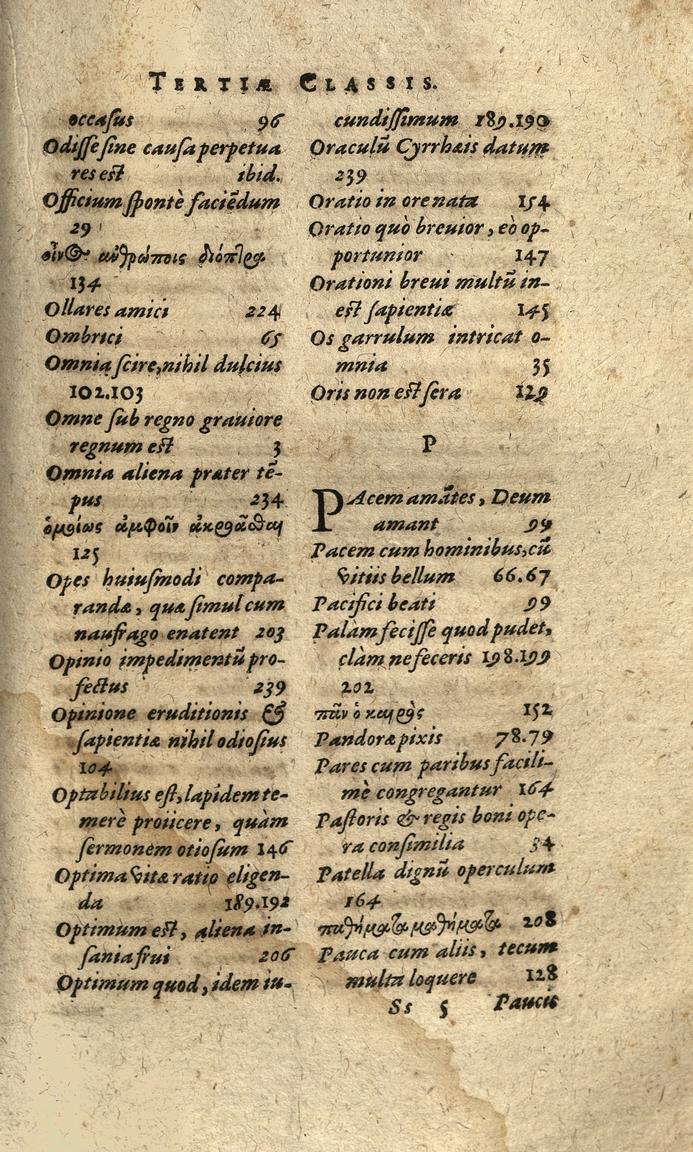 TERTIÆ CLASSIS.
occaſus 96
Odiſſe ſine cauſa perpetua
res est ibid.
Officium ſpontè faciẽdum
29
οἶνος ἀνθρώποις δίοπτρον
134
Ollares amici 224
Ombrici 65
Omnia ſcire, nihil dulcius
102.103
Omne ſub regno grauiore
regnum est 3
Omnia aliena præter tẽ-
pus 234
ὁμοίως ἀμφοῖν ἀκροᾶσθαι
125
Opes huiuſmodi compa-
randæ, quæ ſimul cum
naufrago enatent 203
Opinio impedimentũ pro-
fectus 239
Opinione eruditionis &
ſapientiæ nihil odioſius
104
Optabilius eſt, lapidem te-
merè proiicere, quam
ſermonem otioſum 146
Optima vitæ ratio eligen-
da 189.192
Optimum est, aliena in-
ſania frui 206
Optimum quod, idem iu-
cundiſſimum 189.190
Oraculũ Cyrrhæis datum
239
Oratio in ore nata 154
Oratio quò breuior, eò op-
portunior 147
Orationi breui multũ in-
est ſapientiæ 145
Os garrulum intricat o-
mnia 35
Oris non est ſera 129
P
PAcem amãtes, Deum
amant 99
Pacem cum hominibus, cũ
vitiis bellum 66.67
Pacifici beati 99
Palàm feciſſe quod pudet,
clàm ne feceris 198.199
202
πᾶν ὁ καιρὸς 152
Pandoræ pixis 78.79
Pares cum paribus facili-
mè congregantur 164
Paſtoris & regis boni ope-
ra conſimilia 34
Patella dignũ operculum
164
παθήματα μαθήματα 208
Pauca cum aliis, tecum
multa loquere 128
Ss 5 Paucis